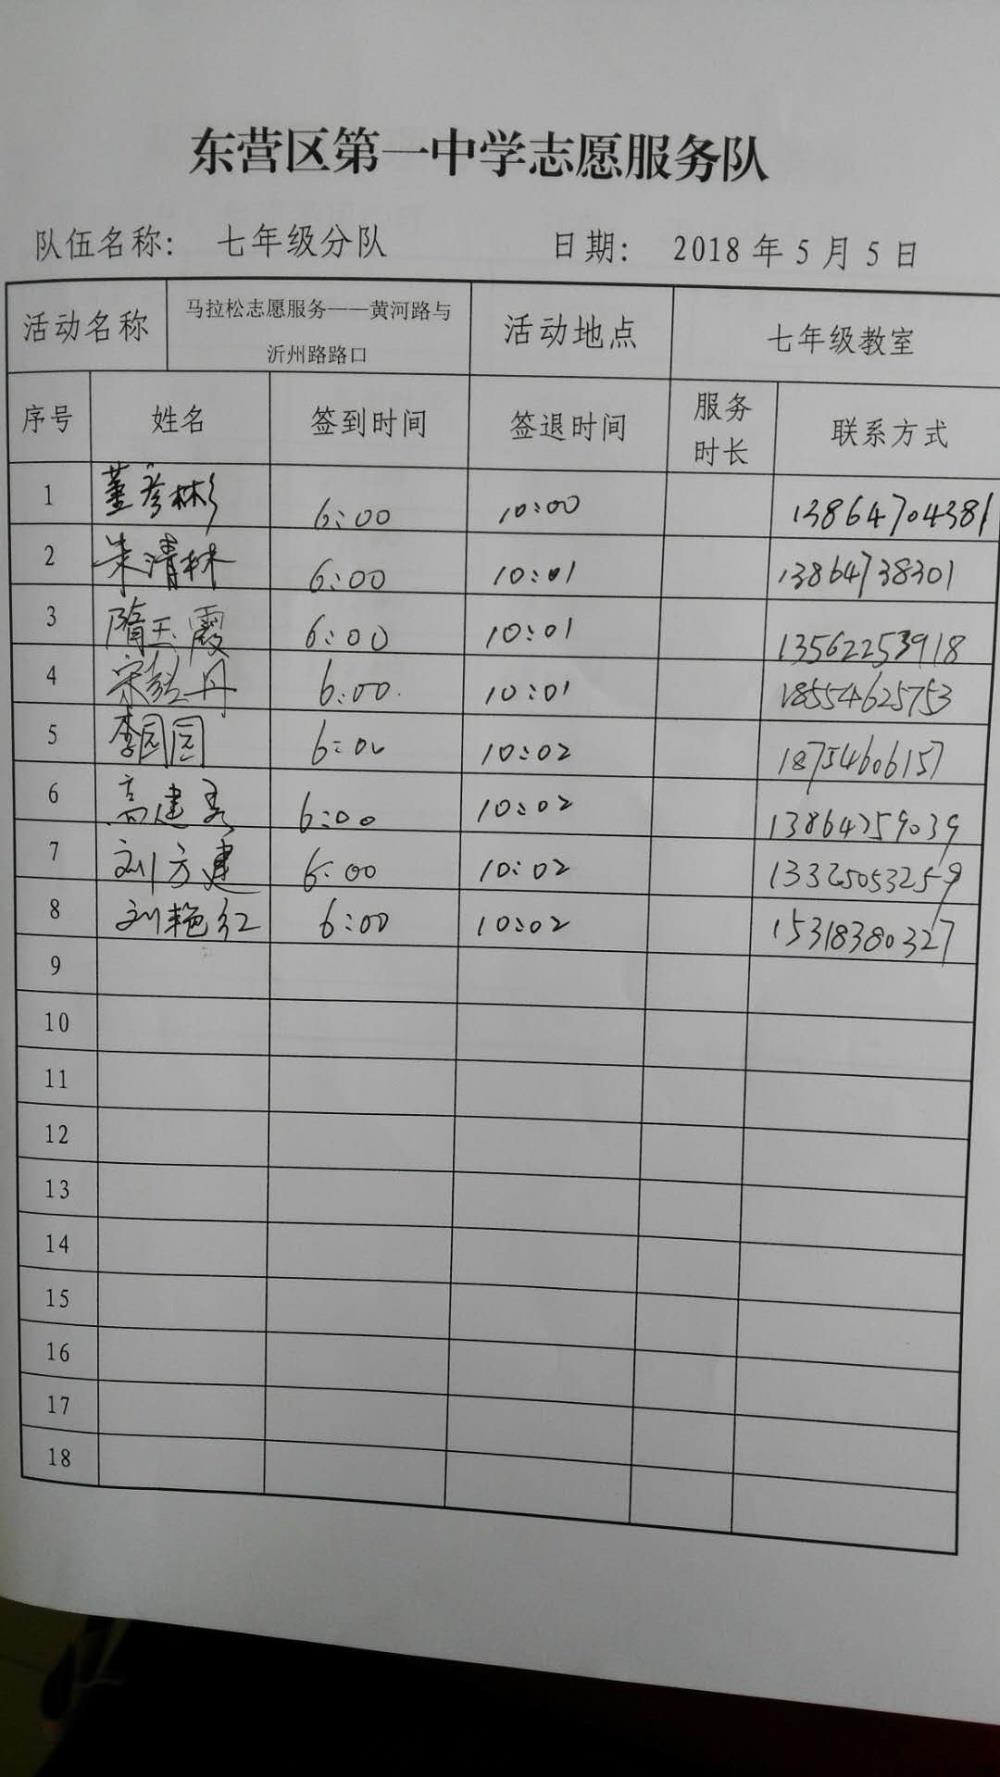 东营区第一中学志愿服务队
队伍名称: 七年级分队 日期: 2018 年 5 月 5 日
活动名称 马拉松志愿服务——黄河路与沂州路路口 活动地点 七年级教室
序号 姓名 签到时间 签退时间 服务时长 联系方式
1 董彦彬 6:00 10:00 13864704381
2 朱清林 6:00 10:01 13864738301
3 隋玉霞 6:00 10:01 13562253918
4 宋 丹 6:00 10:01 18554625753
5 李园园 6:00 10:02 18754606157
6 高建 6:00 10:02 13864259039
7 刘方建 6:00 10:02 13325053259
8 刘艳红 6:00 10:02 15318380327
9
10
11
12
13
14
15
16
17
18